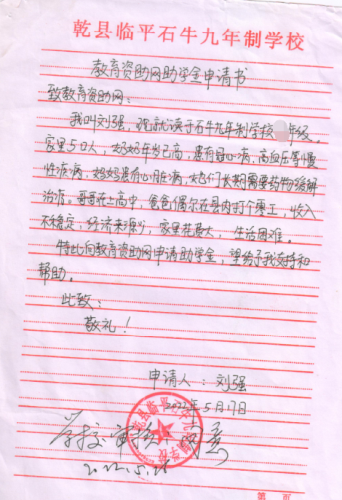 乾县临平石牛九年制学校
教育资助网助学金申请书
致教育资助网:
我叫刘强,现就读于石牛九年制学校 年级。
家里5口人,奶奶年岁已高,患有冠心病,高血压等慢
性疾病;妈妈患有心脏病,她们长期需要药物缓解
治疗。哥哥在上高中,爸爸偶尔在县内打个零工,收入
不稳定,经济来源少,家里花费大,生活困难。
特此向教育资助网申请助学金,望给予我支持和
帮助。
此致:
敬礼!
申请人:刘强
2022年5月17日
学校审核
第 页